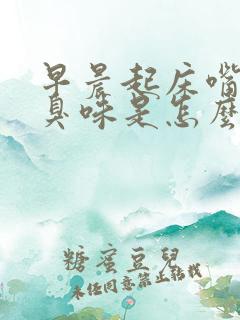 早晨起床嘴
臭味是怎麼
糖蜜豆兒
未经同意禁止转载